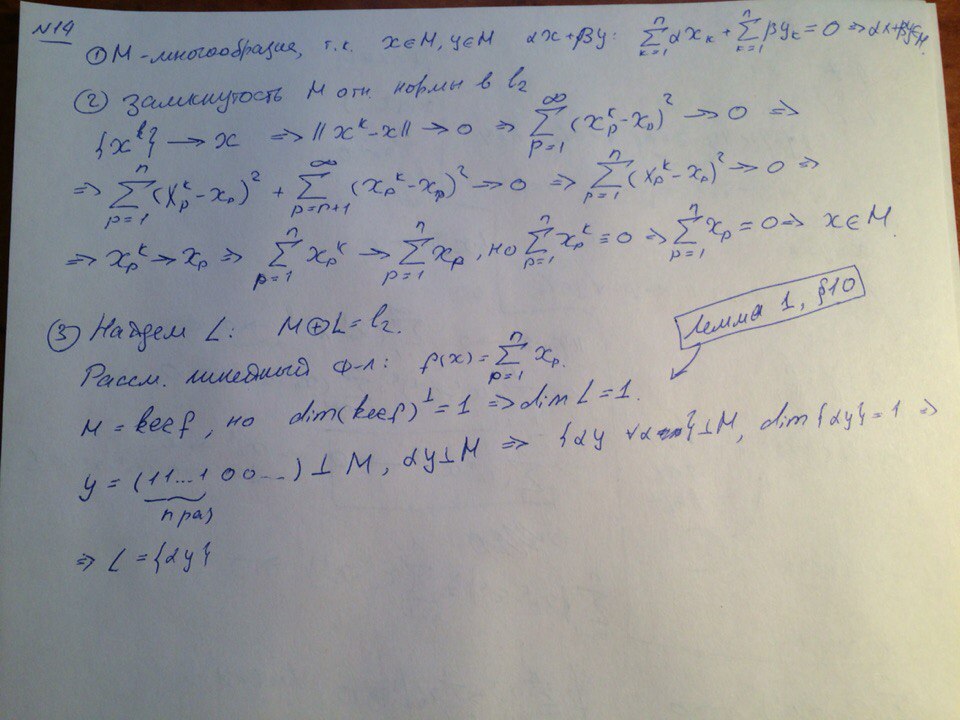 N14
① M - многообразие, т.к. x∈M, y∈M αx+βy: \sum_{k=1}^{n} αx_k + \sum_{k=1}^{n} βy_k = 0 ⇒ αx+βy∈M.
② Замкнутость M отн. нормы в l_2
{x^k} → x ⇒ ||x^k - x|| → 0 ⇒ \sum_{p=1}^{∞} (x_p^k - x_p)^2 → 0 ⇒
⇒ \sum_{p=1}^{n} (x_p^k - x_p)^2 + \sum_{p=n+1}^{∞} (x_p^k - x_p)^2 → 0 ⇒ \sum_{p=1}^{n} (x_p^k - x_p)^2 → 0 ⇒
⇒ x_p^k → x_p ⇒ \sum_{p=1}^{n} x_p^k → \sum_{p=1}^{n} x_p, но \sum_{p=1}^{n} x_p^k = 0 ⇒ \sum_{p=1}^{n} x_p = 0 ⇒ x∈M.
③ Найдем L: M⊕L = l_2.
Лемма 1, §10
Рассм. линейный ф-л: f(x) = \sum_{p=1}^{n} x_p.
M = kerf, но dim(kerf)^⊥ = 1 ⇒ dim L = 1.
y = (11...1 00...) ⊥ M, αy⊥M ⇒ {αy ∀α} ⊥M, dim{αy} = 1 ⇒
n раз
⇒ L = {αy}